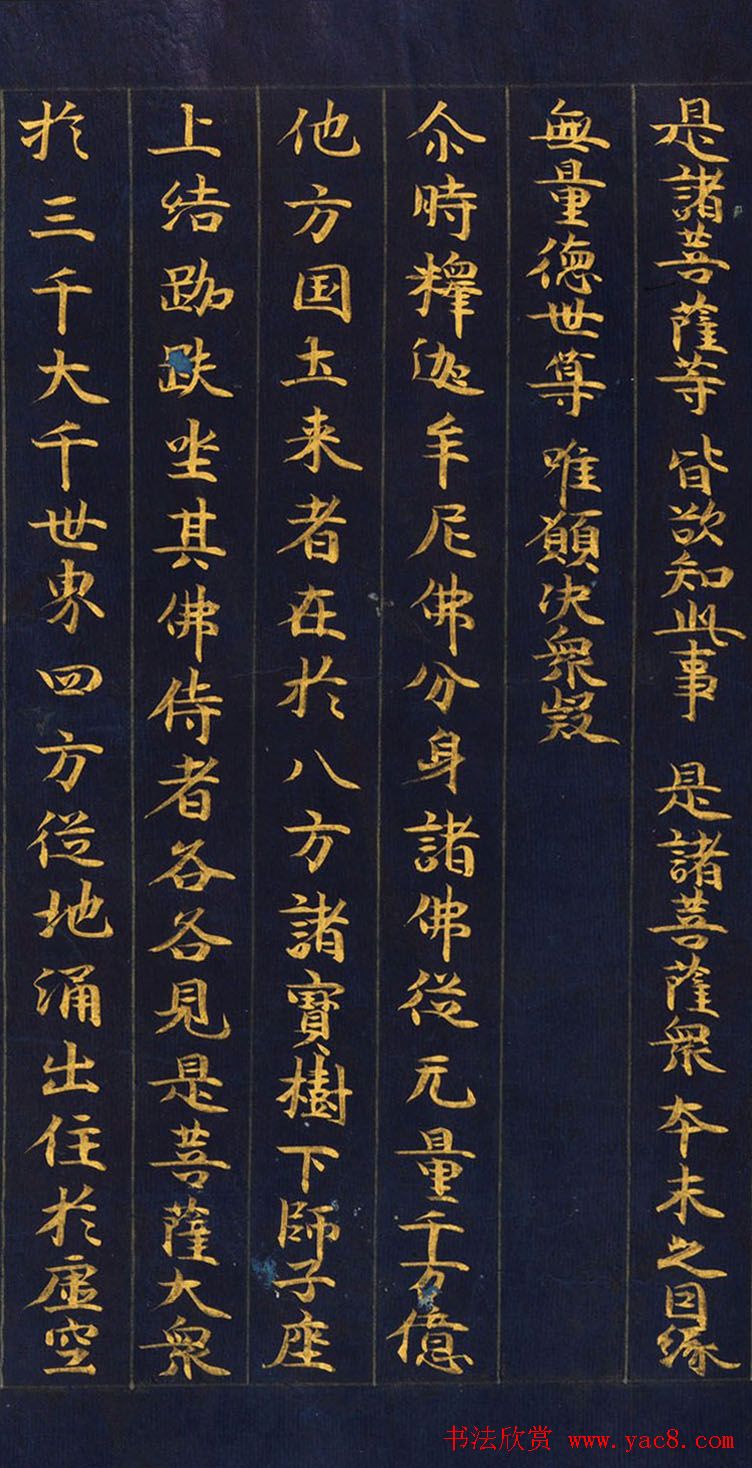 是諸菩薩等 皆欲知此事 是諸菩薩衆 本末之因緣
無量德世尊 唯願决衆疑
尒時釋迦牟尼佛分身諸佛從无量千万億
他方国土来者在於八方諸寶樹下師子座
上結跏趺坐其佛侍者各各見是菩薩大衆
於三千大千世界四方從地涌出住於虛空
书法欣赏 www.yac8.com